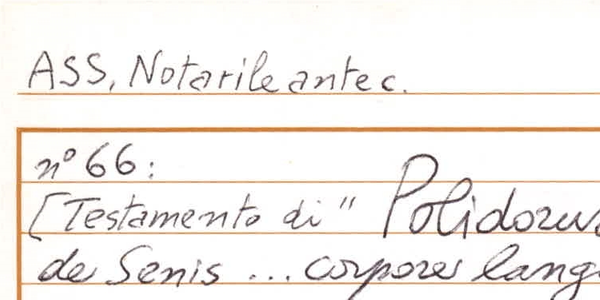 ASS, Notarile antec.
n° 66:
[Testamento di " Polidorus
de Senis ... corpore lang